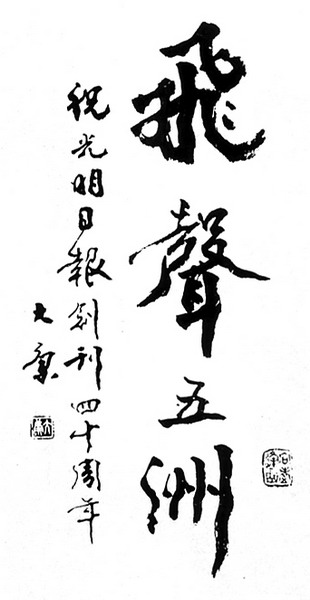 飛聲五洲
祝光明日報創刊四十周年
大康